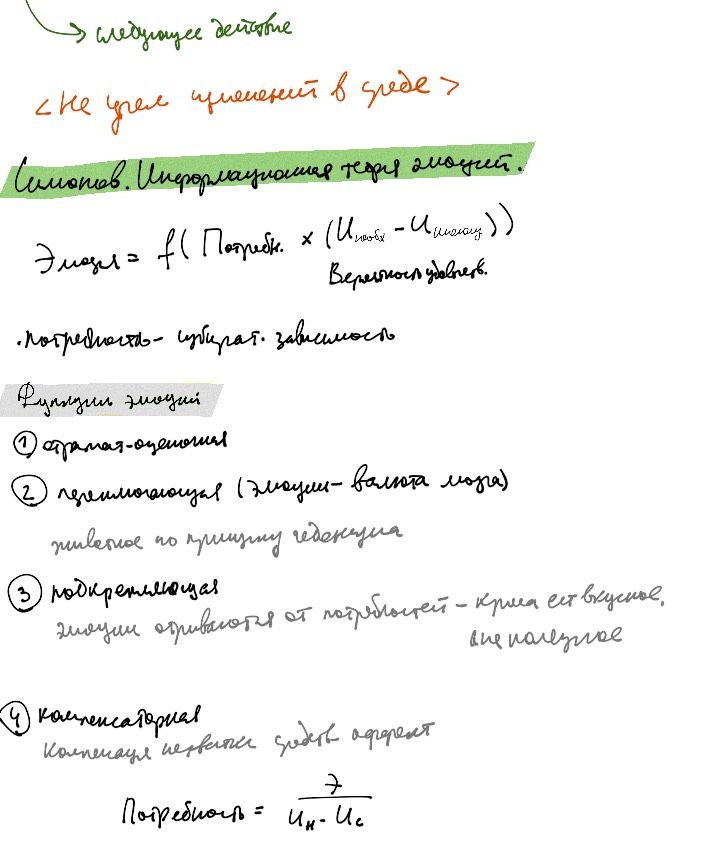 следующее действие
<Не учел изменений в среде>
Симонов. Информационная теория эмоций.
Эмоция = f( Потребн. × (Инеобх - Иимеющ))
Вероятность удовлетв.
·потребность - избират. зависимость
Функции эмоций
① отражат-оценочная
② переключающая (эмоции - валюта мозга)
животное по принципу гедонизма
③ подкрепляющая
эмоции отрываются от потребностей - крыса ест вкусное,
а не полезное
④ компенсаторная
Компенсация нехватки средств
Потребность = Э / (Ин - Ис)